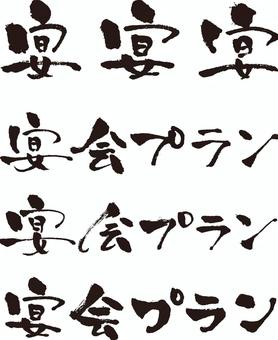 宴 宴 宴
宴会プラン
宴会プラン
宴会プラン